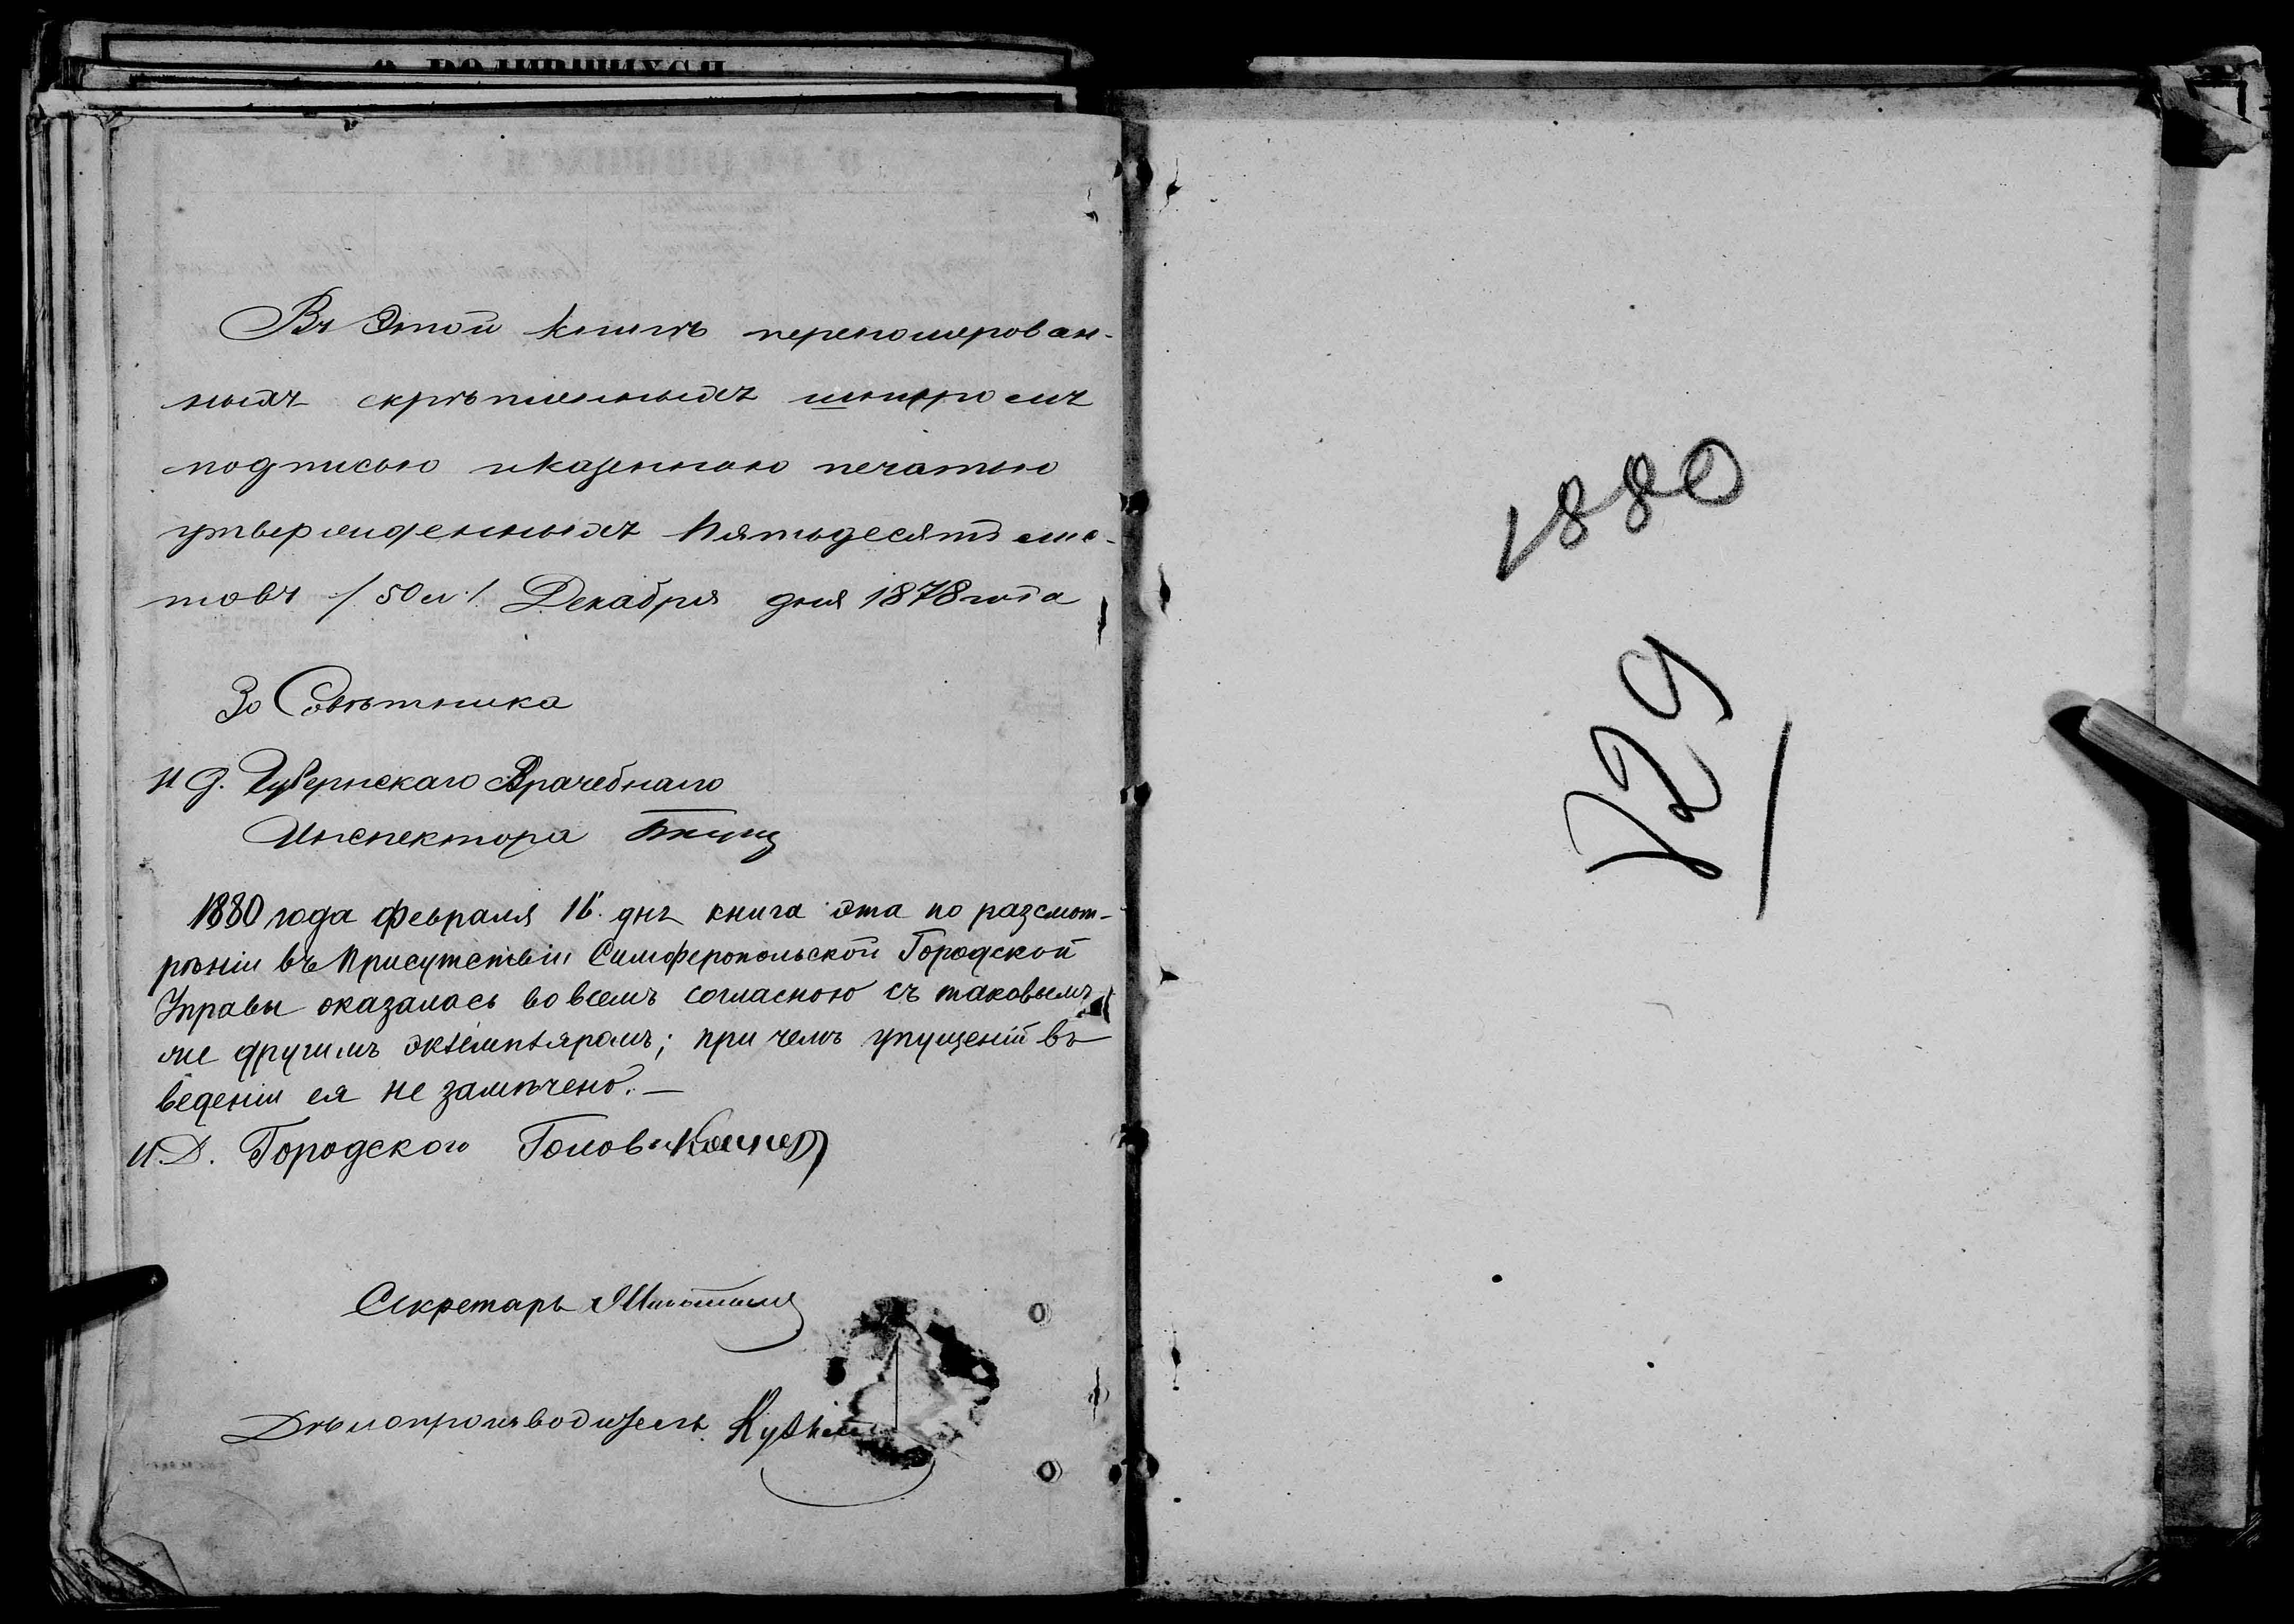 Въ этой книгѣ переномерован-
ныхъ скрѣпленныхъ шнуромъ
подписью и казенною печатью
утвержденныхъ пятьдесятъ лис-
товъ /50 л./ Декабря дня 1878 года
За Совѣтника
И д. Губернскаго Врачебнаго
Инспектора
1880 года февраля 16 дня книга эта по разсмот-
рѣніи въ Присутствіи Симферопольской Городской
Управы оказалась во всемъ согласною съ таковымъ
же другимъ экземпляромъ; при чемъ упущеній въ
веденіи ея не замѣчено.—
И.Д. Городского Головы
Секретарь
Дѣлопроизводитель
1880
729